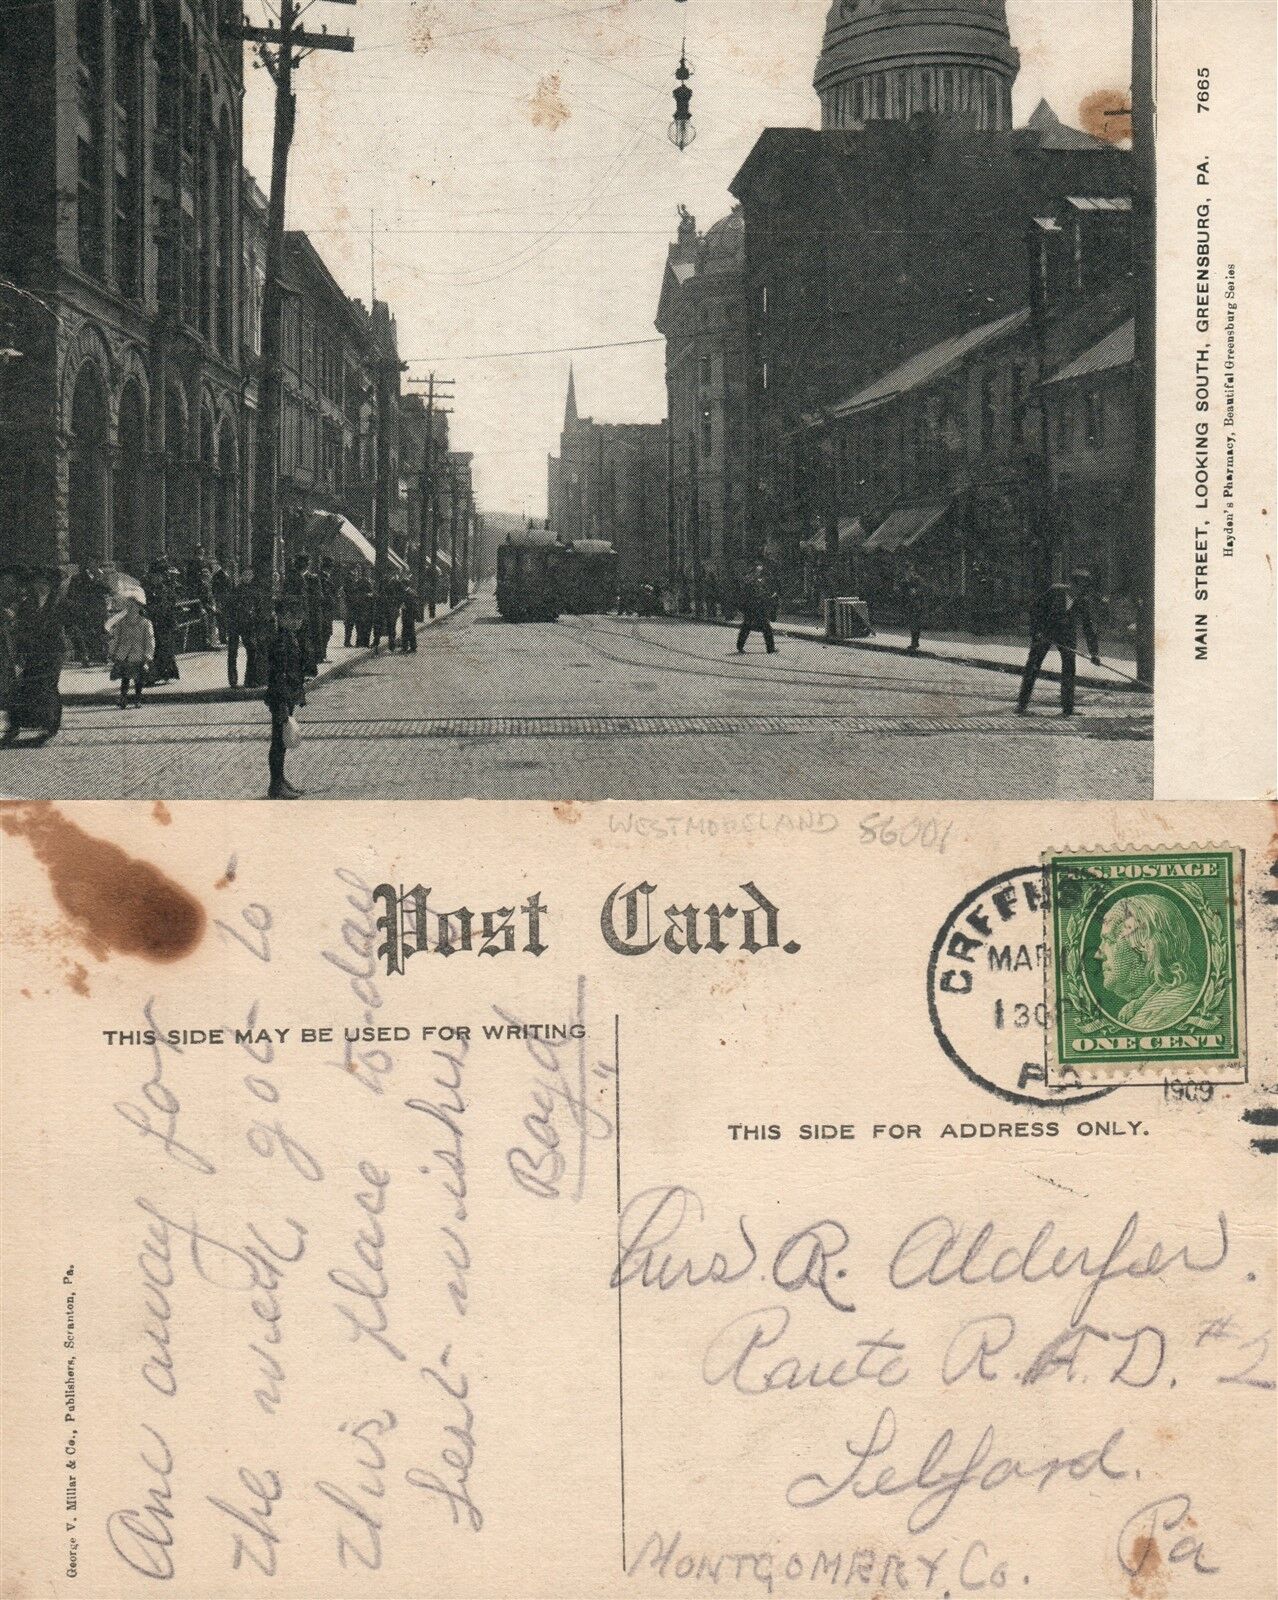 MAIN STREET, LOOKING SOUTH, GREENSBURG, PA. 7665
Hayden's Pharmacy, Beautiful Greensburg Series
WESTMORELAND 56001
Post Card.
U.S. POSTAGE
ONE CENT
GREENSB
MAR
1 30 PM
PA
1909
THIS SIDE MAY BE USED FOR WRITING
THIS SIDE FOR ADDRESS ONLY.
George V. Millar & Co., Publishers, Scranton, Pa.
Am away for
the week got to
this place to-day
Best wishes
Boyd
R. Alderfer.
Route R.F.D. #2
Telford.
Pa
MONTGOMERY, Co.